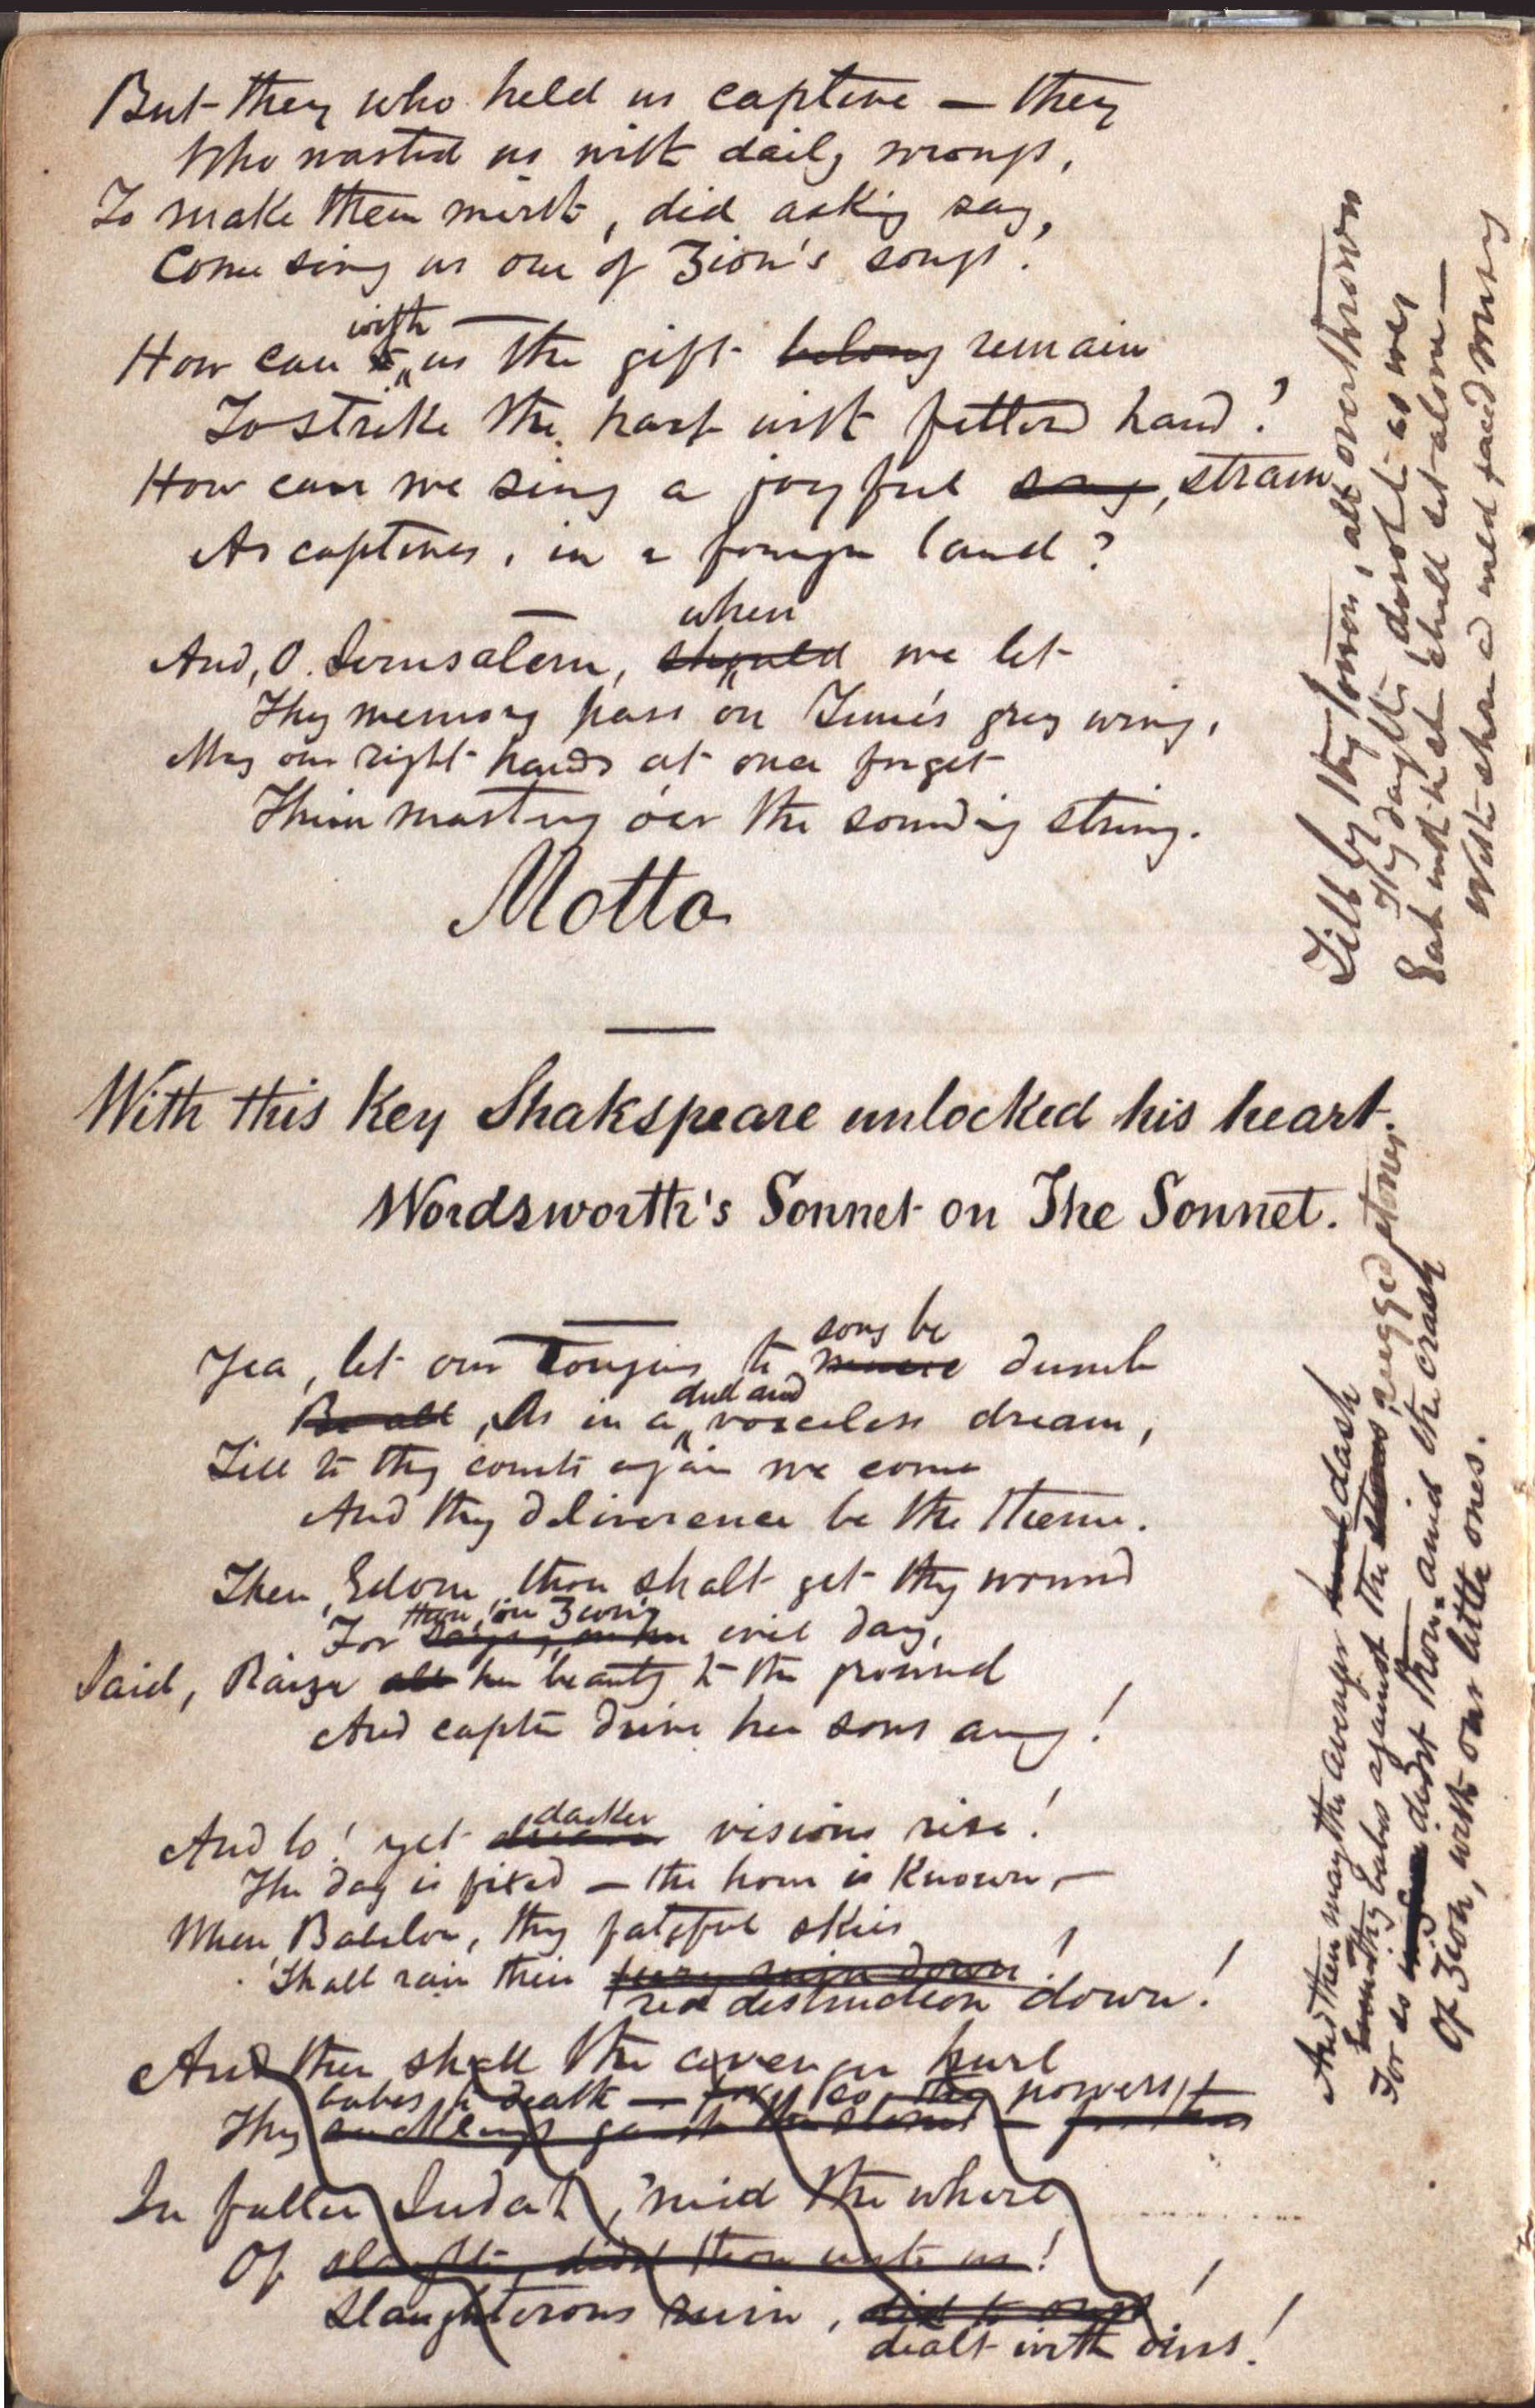 But they who held us captive — they
Who wasted us with daily wrongs,
To make them mirth, did asking say,
Come sing us one of Zion's songs!
with
How can us the gift belong remain
To strike the harp with fetterd hand?
How can we sing a joyful song, strain
As captives, in a foreign land?
when
And, O Jerusalem, should we let
Thy memory pass on Time's grey wing,
May our right hands at once forget
Their mastery o'er the sounding string.
Motto
With this Key Shakspeare unlocked his heart.
Wordsworth's Sonnet on The Sonnet.
song be
Yea, let our Tongues to music dumb
dul and
Be all, As in a voiceless dream,
Till to thy courts again we come
And thy deliverence be the theme.
Then, Edom, thou shalt get thy wound
Thou, in Zion's
For evil day,
Said, Raize all her beauty to the ground
And captive drive her sons away!
darker
And lo! yet visions rise!
The day is fixed — the hour is Known —
When, Babilon, thy fateful skies
Shall rain their fiery ruin down!
red destruction down!
And then shall the avenger hurl
babes to death — so thy powers
Thy sucklings gainst the stones —
In fallen Judah, 'mid the whirl
Of didst thou with us!
Slaughterous ruin,
dealt with ours!
Till by thy towers, all overthrown
Thy daughters desolate as we
Eat instead shall sit alone —
With shame and misery
And then may the avenger dash
thy babes against the stones rugged stones
For so didst thou, amid the crash
Of Zion, with our little ones.